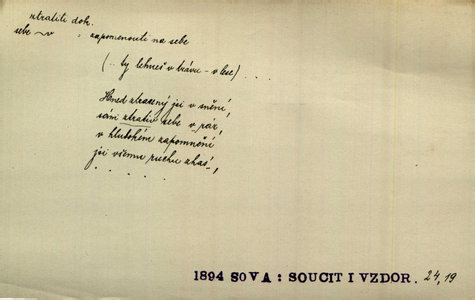 ztratiti dok.
sebe ~v : zapomenouti na sebe
(.. ty lehneš v trávu – v lese) . . . .
Hned ztracený jsi v snění,
sám ztrativ sebe v ráz,
v hlubokém zapomnění
jsi všemu ruchu zhas!,
. . . . .
1894 SOVA : SOUCIT I VZDOR. 24,19